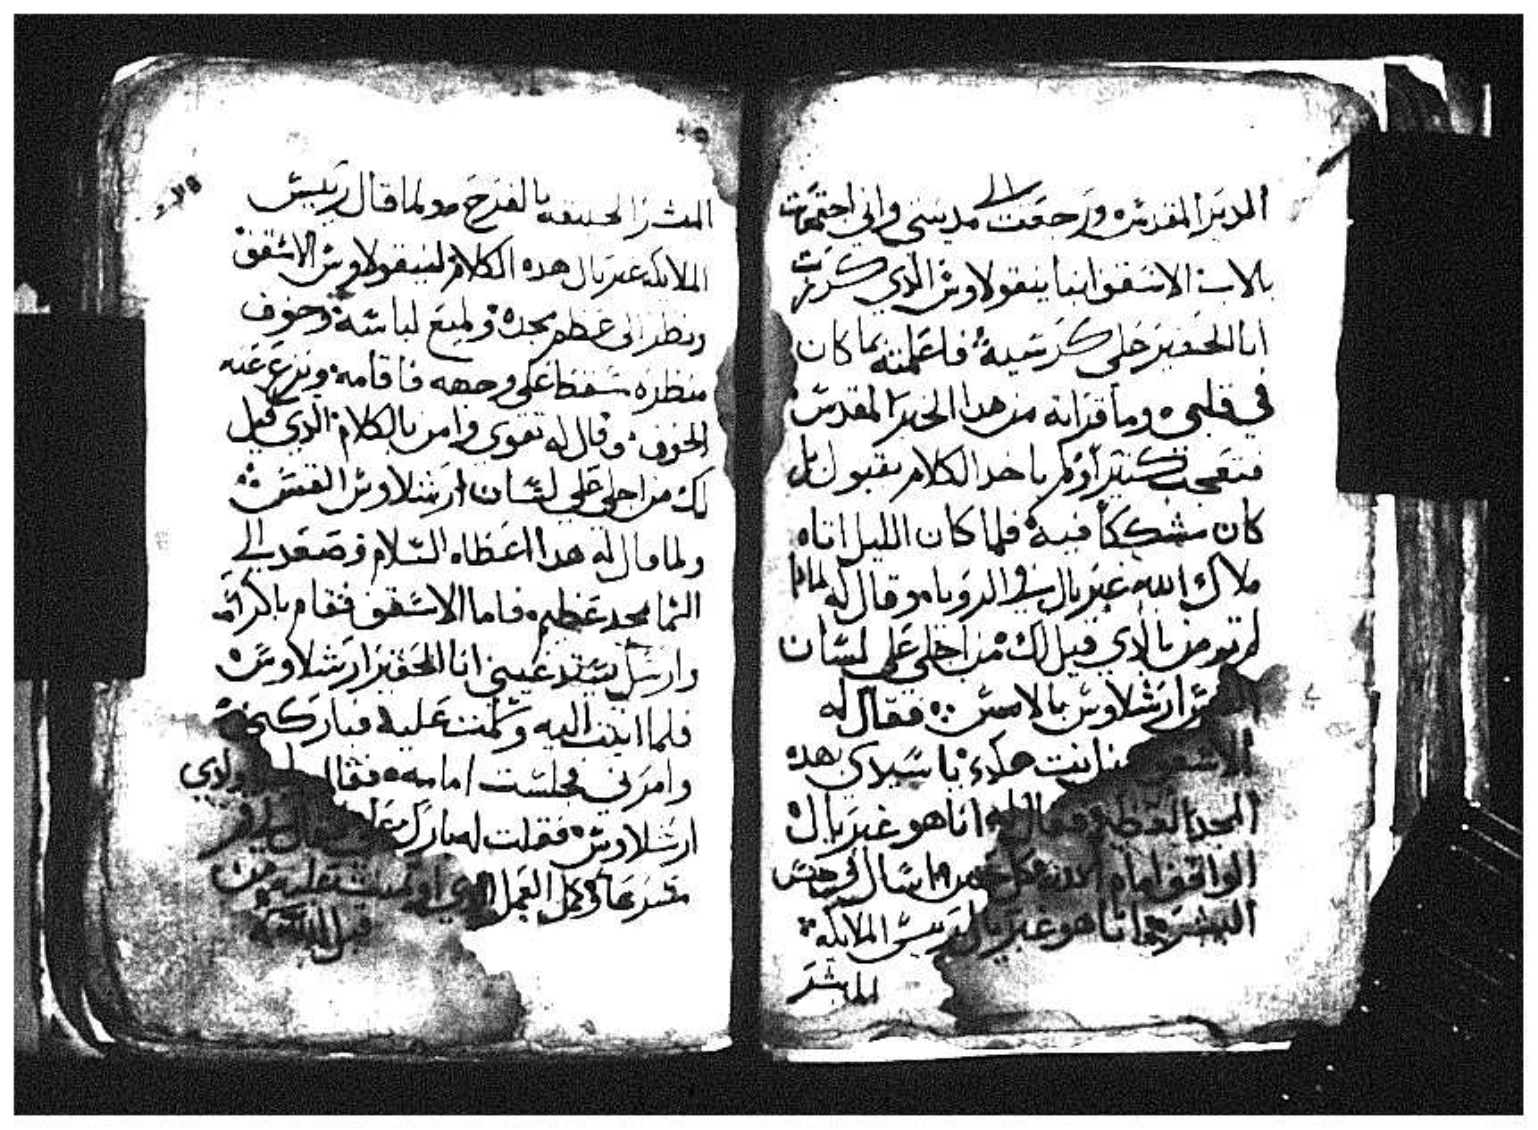 الدير المقدس ورجعت الى مدينتي واني اجتمعت
بالاب الاسقف انبا نيقولاوس الذي كرزت
انا الحقير على كرسيه فاعلمته بما كان
في قلبي وما قراته من هدا الخبر المقدس
فتعجب كتيرا ولم ياخد الكلام بقبول بل
كان مشككا فيه فلما كان الليل اتاه
ملاك الله غبريال في الرويا وقال له لمادا
لم تومن بالدي قيل لك من اجلي على لسان
ارشلاوس بالامس فقال له
الاسقف انت هكدي يا سيدي بهده
المجد العظيم فقال له انا هو غبريال
الواقف امام الله اسال في جنس
البشر انا هو غبريال ريس الملايكه
المبشر
المبشر الحقيقه بالفرح ولما قال رييس
الملايكه غبريال هده الكلام لنيقولاوس الاسقف
ونظر الى عظم مجده ولميع لباسه وخوف
منظره سقط على وجهه فاقامه ونزع عنه
الخوف وقال له تقوى وامن بالكلام الدي قيل
لك من اجلي على لسان ارشلاوس القس
ولما قال له هدا اعطاه السلام وصعد الى
السما بمجد عظيم فاما الاسقف فقام باكرا
وارسل يستدعيني انا الحقير ارشلاوس
فلما اتيت اليه وسلمت عليه فباركني
وامرني فجلست امامه فقال ولدي
ارشلاوس فقلت له بارك
مسرعا وكمل العمل الدي من
قبل الله